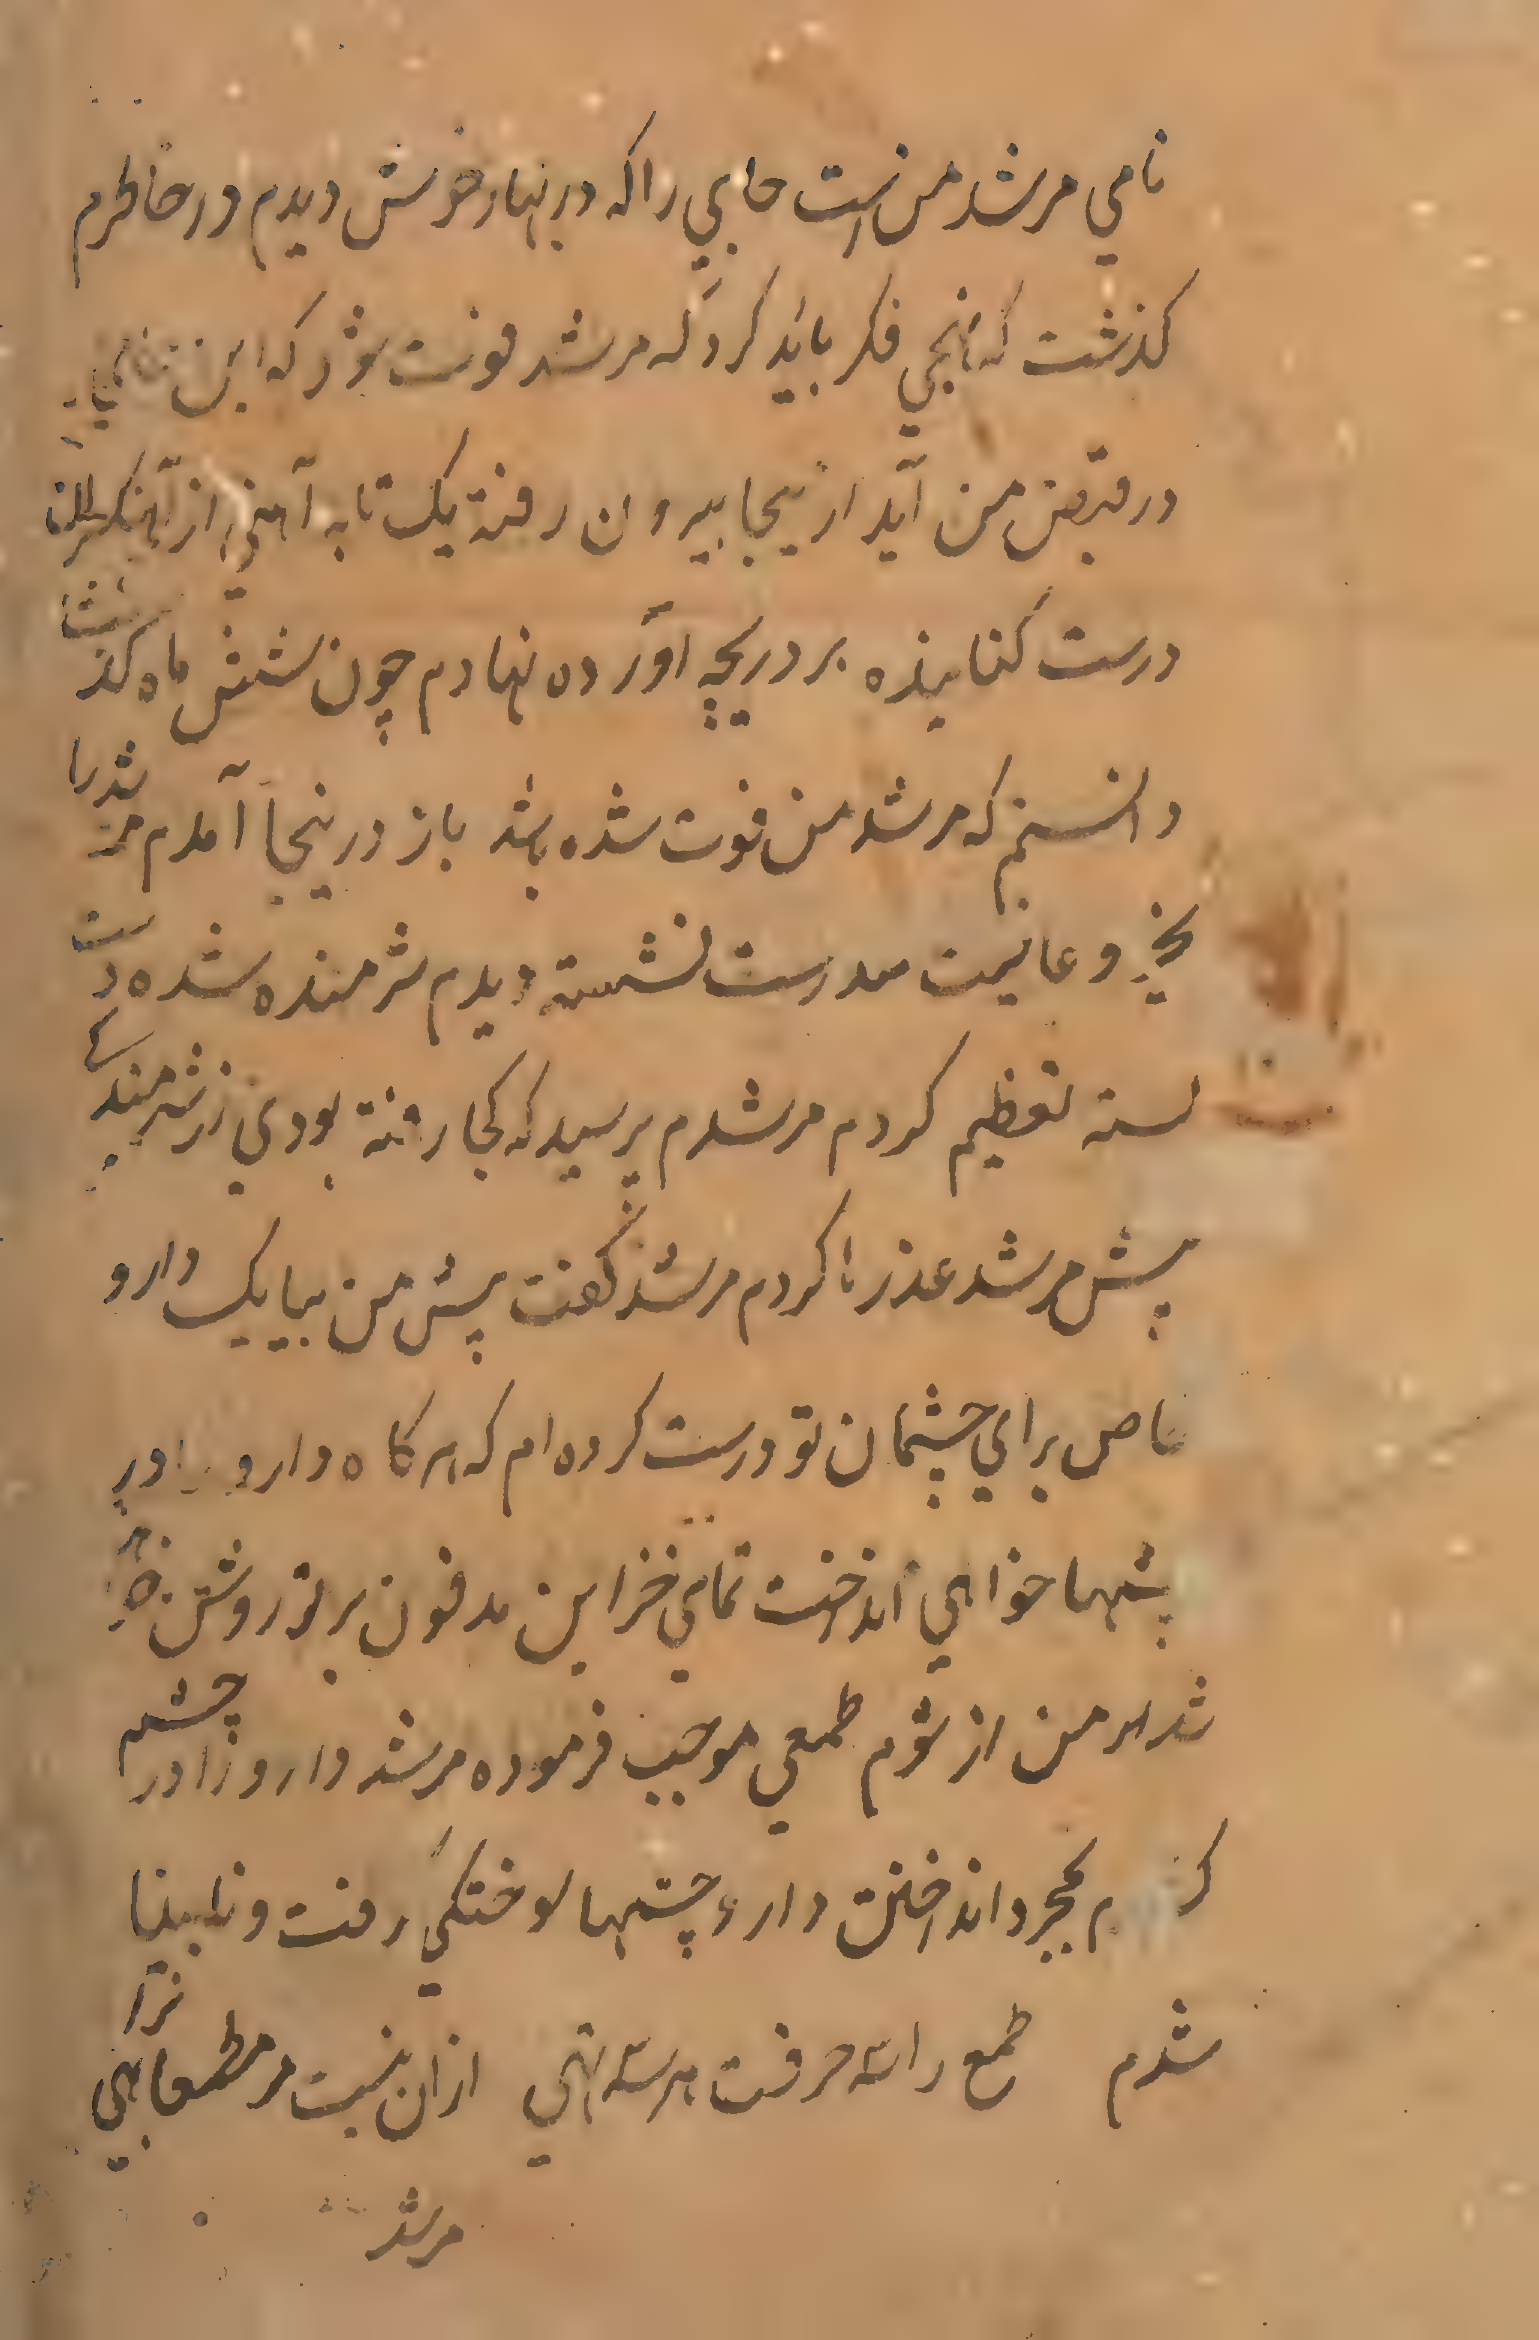 نامي مرشد من است جابي را که در نهار خوش ديدم در خاطرم
کذشت که انجي فکر بايد کرد که مرشد فوت شود که اين
در قبض من آيد ازينجا بيرون رفته يک تابه آهني از آهنکر
درست کنانيده بر دريچه آورده نهادم چون شش ماه کذشت
دانستم که مرشد من فوت شده باشد باز درينجا آمدم مرشد را
بخير و عافيت تندرست نشسته ديدم شرمنده شده دست
بسته تعظيم کردم مرشدم پرسيد که کجا رفته بودي از شرمندکي
پيش مرشد عذرها کردم مرشد کفت پيش من بيا يک دارو
خاص براي چشمان تو درست کرده ام که هرکاه دارو در
چشمها خواهي انداخت تمامي خزاين مدفون بر تو روشن خواهد
شد من از شوم طمعي موجب فرموده مرشد دارو را در چشم
کردم بمجرد انداختن دارو چشمها سوختکي رفت و نابينا
شدم طمع را سه حرفست هر سه تهي از آن نيست مر مطمعان را بهي
مرشد